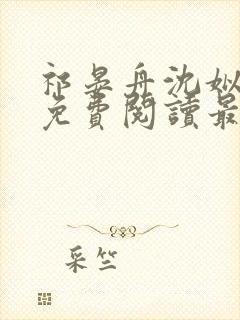 祁晏舟沈姒
免費閱讀最
采竺